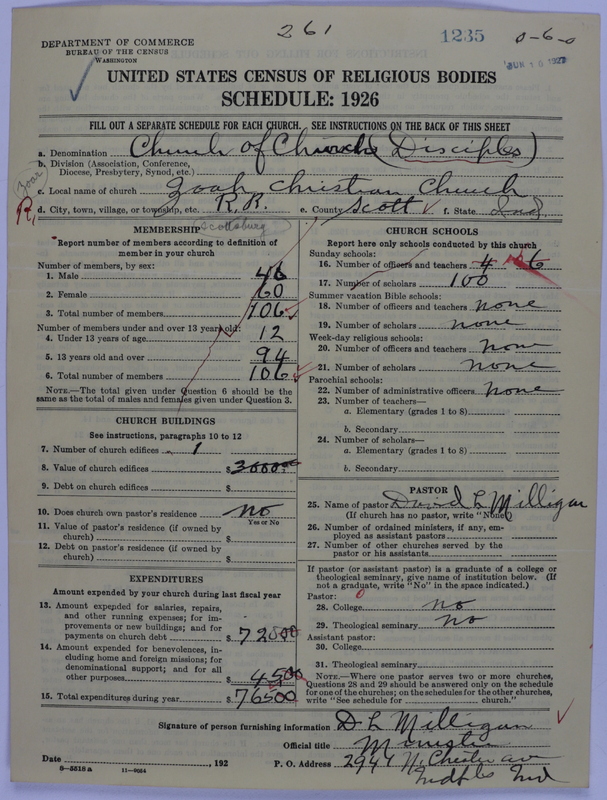 261
1235
0-6-0
DEPARTMENT OF COMMERCE
BUREAU OF THE CENSUS
WASHINGTON
UNITED STATES CENSUS OF RELIGIOUS BODIES
SCHEDULE: 1926
FILL OUT A SEPARATE SCHEDULE FOR EACH CHURCH. SEE INSTRUCTIONS ON THE BACK OF THIS SHEET
a. Denomination Church of (Disciples)
b. Division (Association, Conference,
Diocese, Presbytery, Synod, etc.)
Zoar
c. Local name of church Zoah Christian Church
R. d. City, town, village, or township, etc. R.R. e. County Scott f. State Ind
Scottsburg
MEMBERSHIP
Report number of members according to definition of
member in your church
Number of members, by sex:
1. Male 46
2. Female 60
3. Total number of members 106
Number of members under and over 13 years old:
4. Under 13 years of age 12
5. 13 years old and over 94
6. Total number of members 106
NOTE.—The total given under Question 6 should be the
same as the total of males and females given under Question 3.
CHURCH BUILDINGS
See instructions, paragraphs 10 to 12
7. Number of church edifices 1
8. Value of church edifices $3000.00
9. Debt on church edifices $
10. Does church own pastor's residence? No
Yes or No
11. Value of pastor's residence (if owned by
church) $
12. Debt on pastor's residence (if owned by
church) $
EXPENDITURES
Amount expended by your church during last fiscal year
13. Amount expended for salaries, repairs,
and other running expenses; for im-
provements or new buildings; and for
payments on church debt $72000
14. Amount expended for benevolences, in-
cluding home and foreign missions; for
denominational support; and for all
other purposes $4500
15. Total expenditures during year $76500
CHURCH SCHOOLS
Report here only schools conducted by this church
Sunday schools:
16. Number of officers and teachers 4 6
17. Number of scholars 100
Summer vacation Bible schools:
18. Number of officers and teachers none
19. Number of scholars none
Week-day religious schools:
20. Number of officers and teachers none
21. Number of scholars none
Parochial schools:
22. Number of administrative officers none
23. Number of teachers—
a. Elementary (grades 1 to 8)
b. Secondary
24. Number of scholars—
a. Elementary (grades 1 to 8)
b. Secondary
PASTOR
25. Name of pastor David L Milligan
(If church has no pastor, write "None")
26. Number of ordained ministers, if any, em-
ployed as assistant pastors
27. Number of other churches served by the
pastor or his assistants
If pastor (or assistant pastor) is a graduate of a college or
theological seminary, give name of institution below. (If
not a graduate, write "No" in the space indicated.)
Pastor: 0
28. College no
29. Theological seminary no
Assistant pastor:
30. College
31. Theological seminary
NOTE.—Where one pastor serves two or more churches,
Questions 28 and 29 should be answered only on the schedule
for one of the churches; on the schedules for the other churches,
write "See schedule for church."
Signature of person furnishing information D L Milligan
Official title Minister
Date , 192 P. O. Address 2944 N. Chester av
Indpls Ind
8-5518 a 11-9034